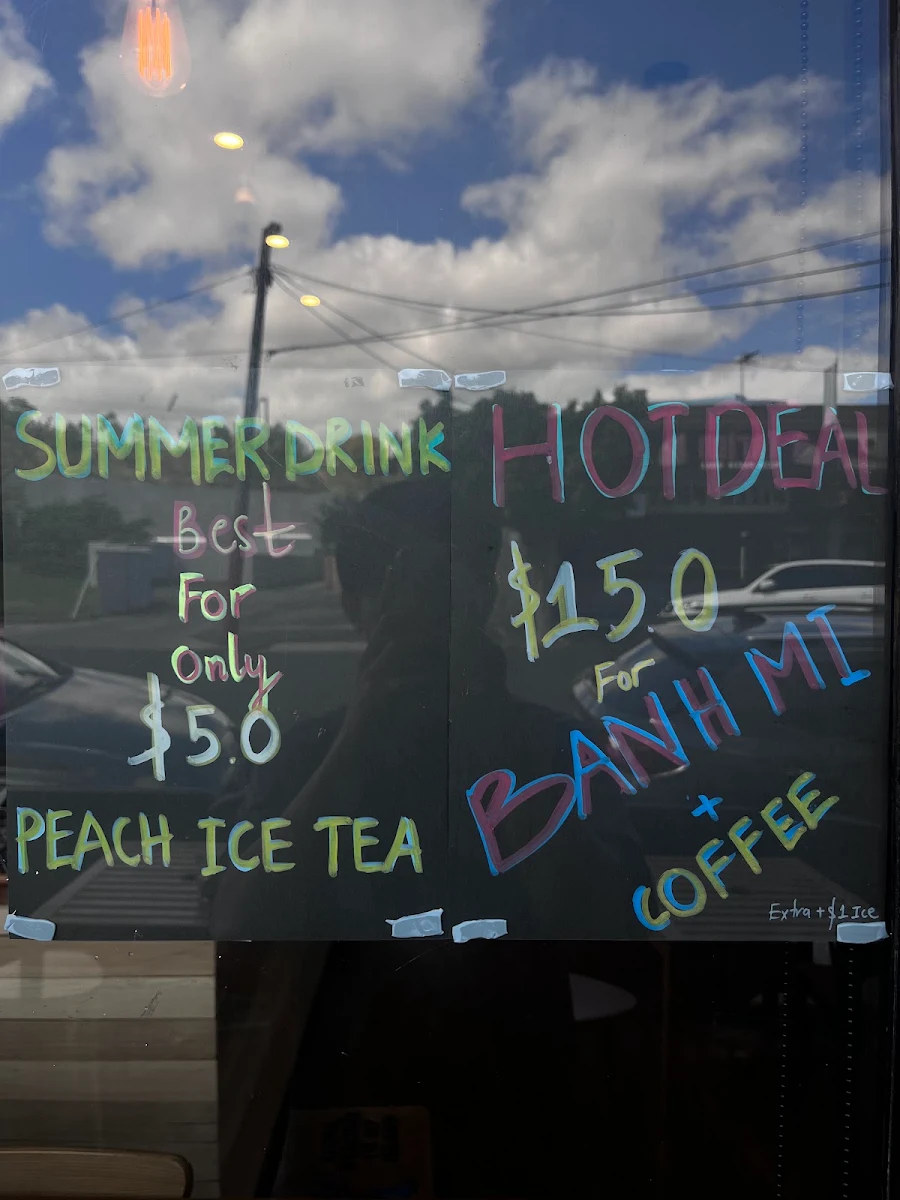 SUMMER DRINK
Best
For
Only
$5.0
PEACH ICE TEA
HOT DEAL
$15.0
For
BANH MI
+
COFFEE
Extra + $1 Ice